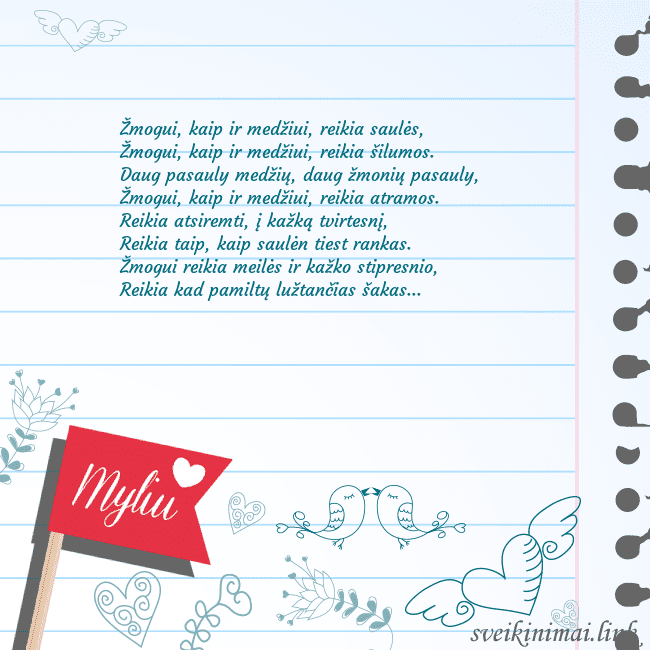 Žmogui, kaip ir medžiui, reikia saulės,
Žmogui, kaip ir medžiui, reikia šilumos.
Daug pasauly medžių, daug žmonių pasauly,
Žmogui, kaip ir medžiui, reikia atramos.
Reikia atsiremti, į kažką tvirtesnį,
Reikia taip, kaip saulėn tiest rankas.
Žmogui reikia meilės ir kažko stipresnio,
Reikia kad pamiltų lužtančias šakas...
Myliu
sveikinimai.link